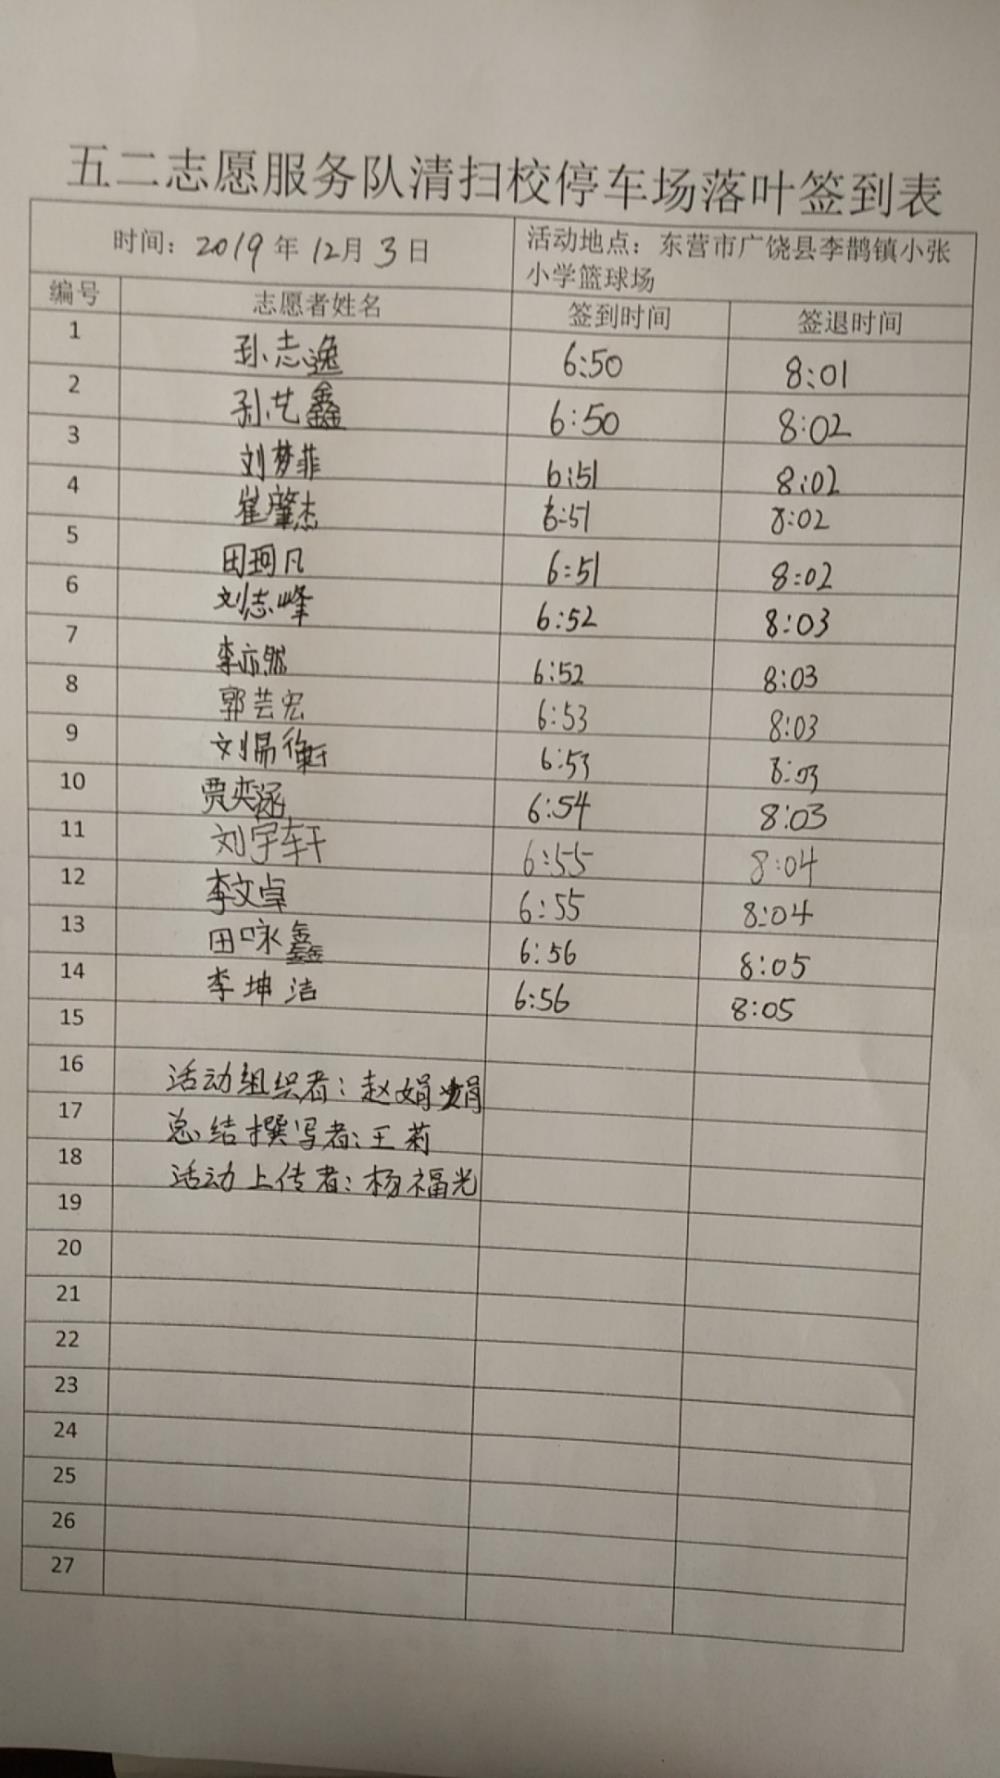 五二志愿服务队清扫校停车场落叶签到表
时间：2019年12月3日 活动地点：东营市广饶县李鹊镇小张
小学篮球场
编号 志愿者姓名 签到时间 签退时间
1 孙志逸 6:50 8:01
2 孙艺鑫 6:50 8:02
3 刘梦菲 6:51 8:02
4 崔肇杰 6:51 8:02
5 田珂凡 6:51 8:02
6 刘志峰 6:52 8:03
7 李亦然 6:52 8:03
8 郭芸宏 6:53 8:03
9 刘易衡 6:53 8:03
10 贾奕涵 6:54 8:03
11 刘宇轩 6:55 8:04
12 李文卓 6:55 8:04
13 田咏鑫 6:56 8:05
14 李坤洁 6:56 8:05
15
16 活动组织者：赵娟娟
17 总结撰写者：王莉
18 活动上传者：杨福光
19
20
21
22
23
24
25
26
27